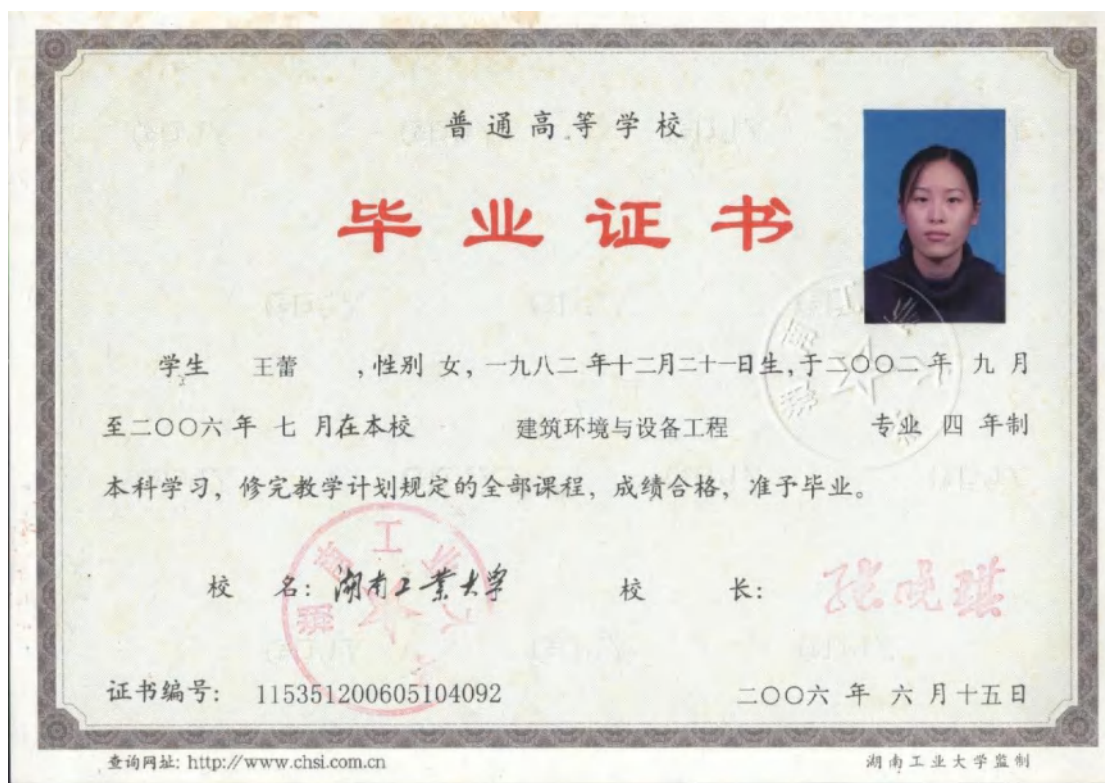 普通高等学校
毕业证书
学生 王蕾 ，性别 女，一九八二年十二月二十一日生，于二〇〇二年 九 月
至二〇〇六年 七 月在本校 建筑环境与设备工程 专业 四 年制
本科学习，修完教学计划规定的全部课程，成绩合格，准予毕业。
校 名：湖南工業大学 校 长：张晓琪
证书编号： 115351200605104092 二〇〇六 年 六 月十五日
查询网址: http://www.chsi.com.cn 湖南工业大学监制